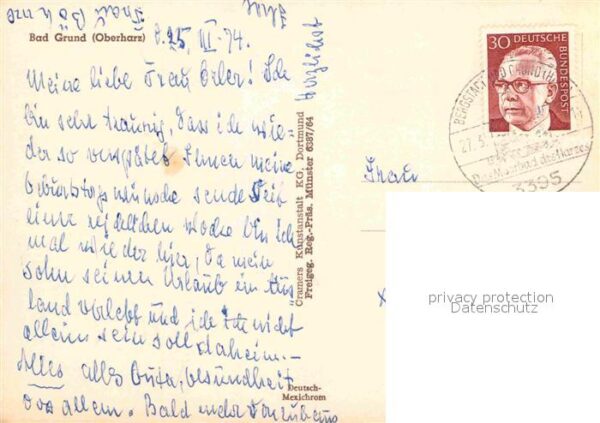 Bad Grund (Oberharz)
d. 25. III - 74.
Meine liebe Frau Orler! Ich
bin sehr traurig, dass ich wie-
der so verspätet Ihnen meine
Geburtstagswünsche sende. Seit
einer reichlichen Woche bin ich
mal wieder hier, da mein
Sohn seinen Urlaub im Aus
land verlebt und ich nicht
allein sein soll daheim.-
Alles alles Gute, Gesundheit
vor allem. Bald wieder
Herzlichst
Ihre
Frau
Cramers Kunstanstalt KG. Dortmund
Freigeg. Reg.-Präs. Münster 6387/64
Deutsch-
Mexichrom
30 DEUTSCHE
BUNDESPOST
BERGSTADT BAD GRUND (HARZ)
27.5.
Das Moorbad des Harzes
3395
Frau
privacy protection
Datenschutz